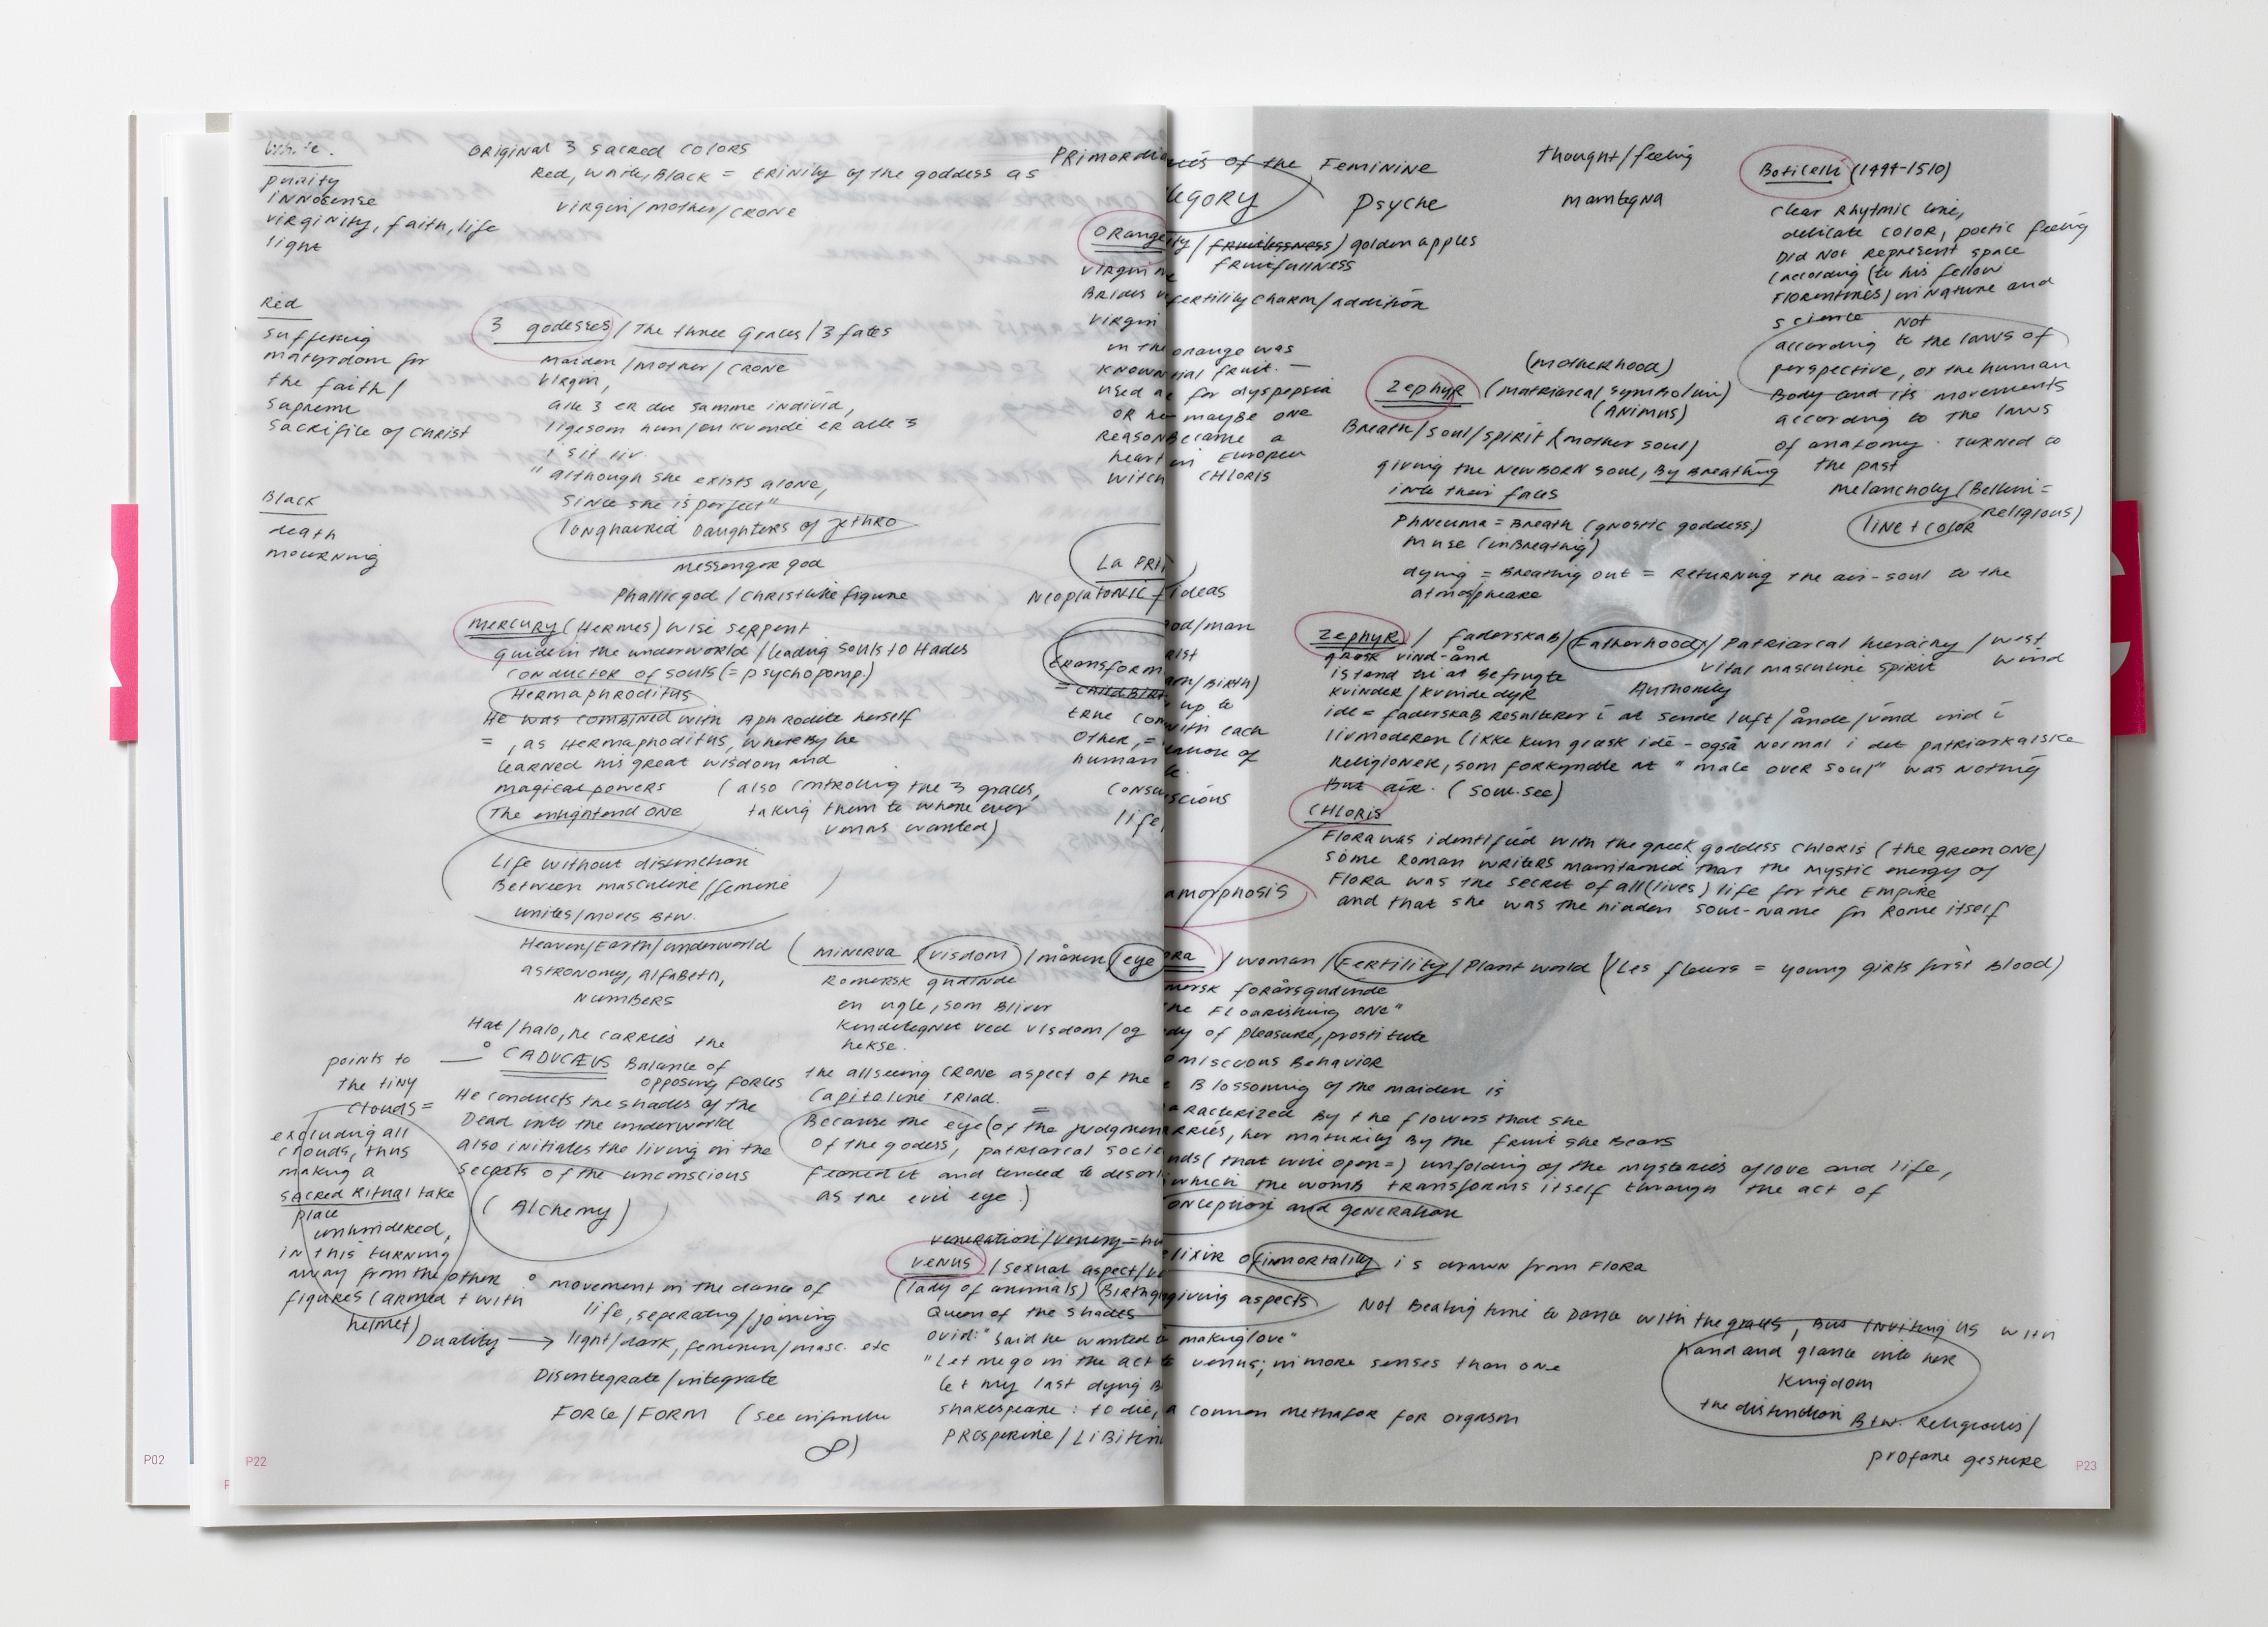 White.
purity
innosense
virginity, faith, life
light
Red
suffering
matyrdom for
the faith/
supreme
sacrifile of Christ
Black
death
mourning
Original 3 sacred colors
Red, white, Black = trinity of the goddess as
virgin/mother/crone
3 godesses/The three Graces/3 fates
maiden/mother/crone
virgin,
alle 3 er du samme individ,
ligesom hun/en kvinde er alle 3
i sit liv.
"although she exists alone,
since she is perfect"
longhaired Daughters of Jethro
messenger god
Phallic god/Christlike figure
Mercury (Hermes) wise serpent
guide in the underworld/leading souls to Hades
conductor of souls (= psychopomp.)
Hermaphroditus
He was combined with Aphrodite herself
=, as Hermaphoditus, whereby he
learned his great wisdom and
magical powers
(also controling the 3 graces,
taking them to where ever
venus wanted)
The enlightend one
Life without distinction
Between masculine/feminie
unites/moves Btw.
Heaven/Earth/underworld
astronomy, Alfabeth,
numbers
Hat/halo, he carries the
° CADUCÆUS Balance of
opposing forces
He conducts the shades of the
Dead into the underworld
also initiates the living in the
secrets of the unconscious
(Alchemy)
points to
the tiny
clouds =
excluding all
clouds, thus
making a
sacred ritual take
place
unhindered,
in this turning
away from the other
figures (armed + with
helmet)
° movement in the dance of
life, seperating/joining
Duality → light/dark, feminin/masc. etc
Disintegrate/integrate
Force/Form (see
∞)
(Minerva (visdom)/månen/eye
Romersk gudinde
en ugle, som bliver
kendetegnet ved visdom/og
hekse.
the allseeing crone aspect of the
Capitoline triad.
Because the eye (of the judgmen
of the godess, patriarcal socie
feared it and tended to
as the evil eye)
veneration/venery =
Venus/sexual aspect/
(lady of animals) Birth
Queen of the shades
ovid: "said he wanted
"Let me go in the act
let my last dying B
shakespeare: to die,
Prosperine/Libitin
Primordia
Orange
virgin
Brides
virgin
in the
known
used a
or he
reason
heart
witch
La Pri
Neoplatonic
transform
= childbirt
true con
other, =
human
consu
life,
of the Feminine
egory
Psyche
ity/fruitlessness) golden apples
fruitfullness
fertility charm/addition
orange was
ial fruit. —
for dyspepsia
maybe one
became a
in European
Chloris
ideas
od/man
rist
/Birth)
up to
with each
of
scious
amorphosis
thought/feeling
mantegna
(motherhood)
Zephyr (matriarcal symbolism)
(Animus)
Breath/soul/spirit (mother soul)
giving the newborn soul, By Breathing
into their faces
Phneuma = Breath (gnostic goddess)
muse (inBreathig)
dying = Breathing out = Returning the air-soul to the
atmospheare
Boticelli (1444-1510)
clear rhytmic line,
delicate color, poetic feeling
Did not represent space
(according (to his fellow
Florentines) in nature and
science not
according to the laws of
perspective, or the human
Body and its movements
according to the laws
of anatomy. turned to
the past
melancholy (Bellini =
religious)
line + color
Zephyr/faderskab/Fatherhood/Patriarcal hierachy/west
wind
græsk vind-ånd
vital masculine spirit
istand til at befrugte
Authority
kvinder/kvindedyr
ide = faderskab resulterer i at sende luft/ånde/vind ind i
livmoderen (ikke kun græsk idé - også normal i det patriarkalske
religioner, som forkyndte at "male over soul" was nothing
But air. (soul.see)
Chloris
Flora was identified with the greek goddess Chloris (the green one)
some Roman writers maintained that the mystic energy of
Flora was the secret of all (lives) life for the Empire
and that she was the hidden soul-name for Rome itself
ora/woman/Fertility/Plant world (Les fleurs = young girls first Blood)
mersk forårsgudinde
he Flourishing one"
dy of pleasure, prostitute
omiscuous Behavior
Blossoming of the maiden is
aracterized By the flowers that she
arries, her maturity By the fruit she Bears
nds (that will open =) unfolding of the mysteries of love and life,
which the womb transforms itself through the act of
onception and generation
lixir of immortality is drawn from Flora
giving aspects
Not Beating time to Dance with the graces, But inviting us with
hand and glance into her
kingdom
the distinction Btw. religiouis/
profane gesture
making love"
venus; in more senses than one
a common methafor for orgasm
P02
P22
P23